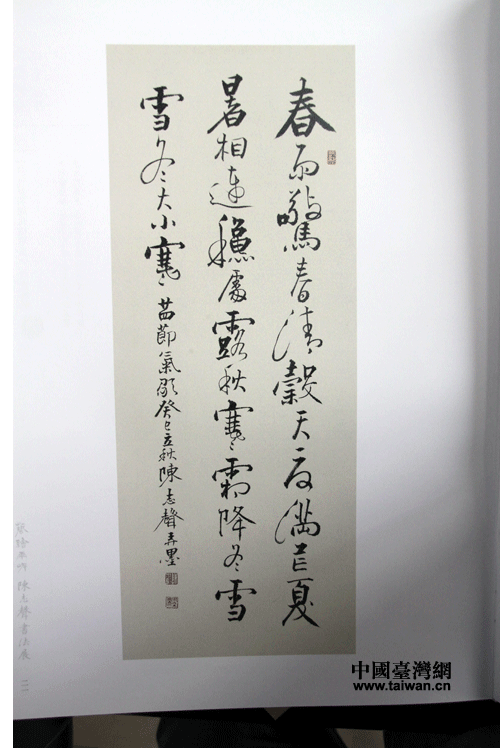 春雨驚春清穀天夏滿芒夏
暑相連穐處露秋寒霜降冬雪
雪冬大小寒 廿四節氣歌 癸巳立秋陳志聲弄墨
陳志聲書法展
中國臺灣網
www.taiwan.cn